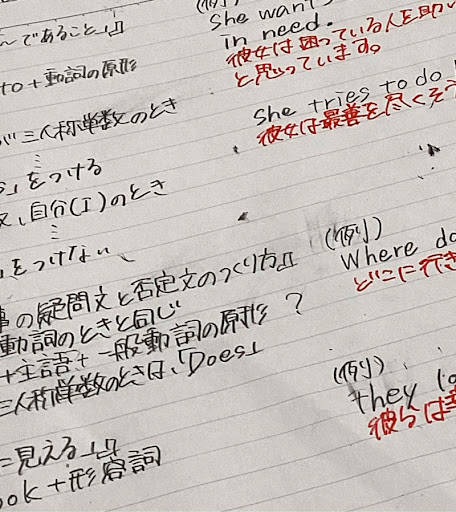 んであること』』
to+動詞の原形
が三人称単数のとき
」をつける
、自分(I)のとき
」をつけない
の疑問文と否定文のつくり方』』
動詞のときと同じ
+主語+一般動詞の原形 ?
三人称単数のときは、「Does」
=見える』』
ook+形容詞
(例)
She want
in need.
彼女は困っている人を助
と思っています。
She tries to do
彼女は最善を尽くそう
(例)
Where do
どこに行き
(例)
they lo
彼らは